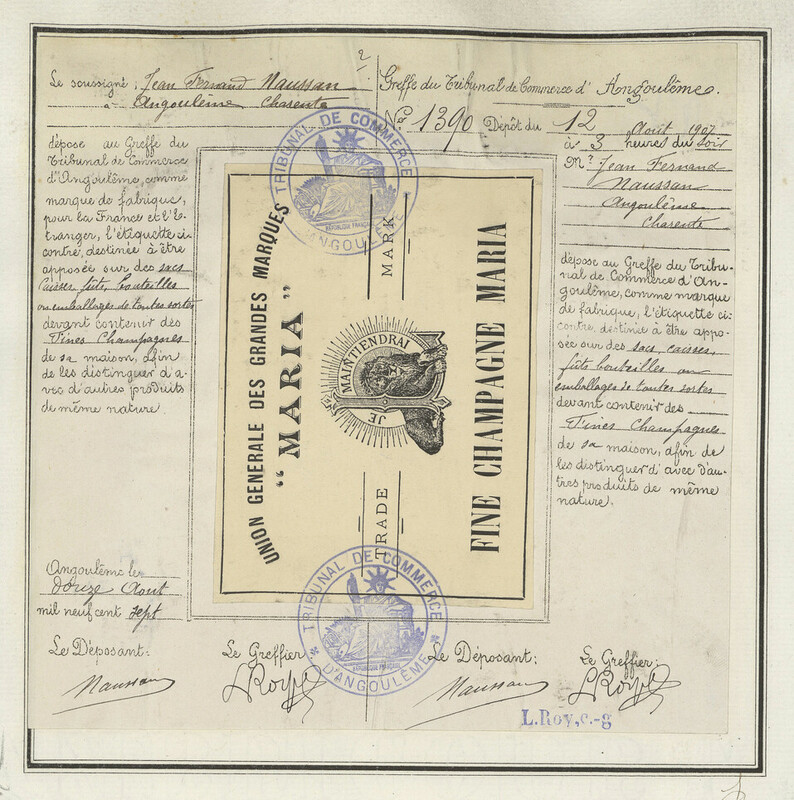 Le soussigné, Jean Fernand Naussan
à Angoulême Charente
dépose au Greffe du
Tribunal de Commerce
d'Angoulême, comme
marque de fabrique,
pour la France et l'é-
tranger, l'étiquette ci-
contre, destinée à être
apposée sur des sacs
caisses, fûts, bouteilles
ou emballages de toutes sortes
devant contenir des
Fines Champagnes
de sa maison, afin
de les distinguer d'a-
vec d'autres produits
de même nature.
Angoulême le
douze Août
mil neuf cent sept
Le Déposant:
Naussan
Le Greffier
2
Greffe du Tribunal de Commerce d'Angoulême.
No 1390 Dépôt du 12 Août 1907
à 3 heures du soir
Mr Jean Fernand
Naussan
Angoulême
Charente
dépose au Greffe du Tribu-
nal de Commerce d'An-
goulême, comme marque
de fabrique, l'étiquette ci-
contre, destinée à être appo-
sée sur des sacs, caisses,
fûts bouteilles ou
emballages de toutes sortes
devant contenir des
Fines Champagnes
de sa maison, afin de
les distinguer d'avec d'au-
tres produits de même
nature.
Le Déposant:
Naussan
Le Greffier:
L. Roy, c.-g
UNION GENERALE DES GRANDES MARQUES
"MARIA"
TRADE MARK
JE MAINTIENDRAI
FINE CHAMPAGNE MARIA
TRIBUNAL DE COMMERCE
RÉPUBLIQUE FRANÇAISE
D'ANGOULÊME
TRIBUNAL DE COMMERCE
RÉPUBLIQUE FRANÇAISE
D'ANGOULÊME